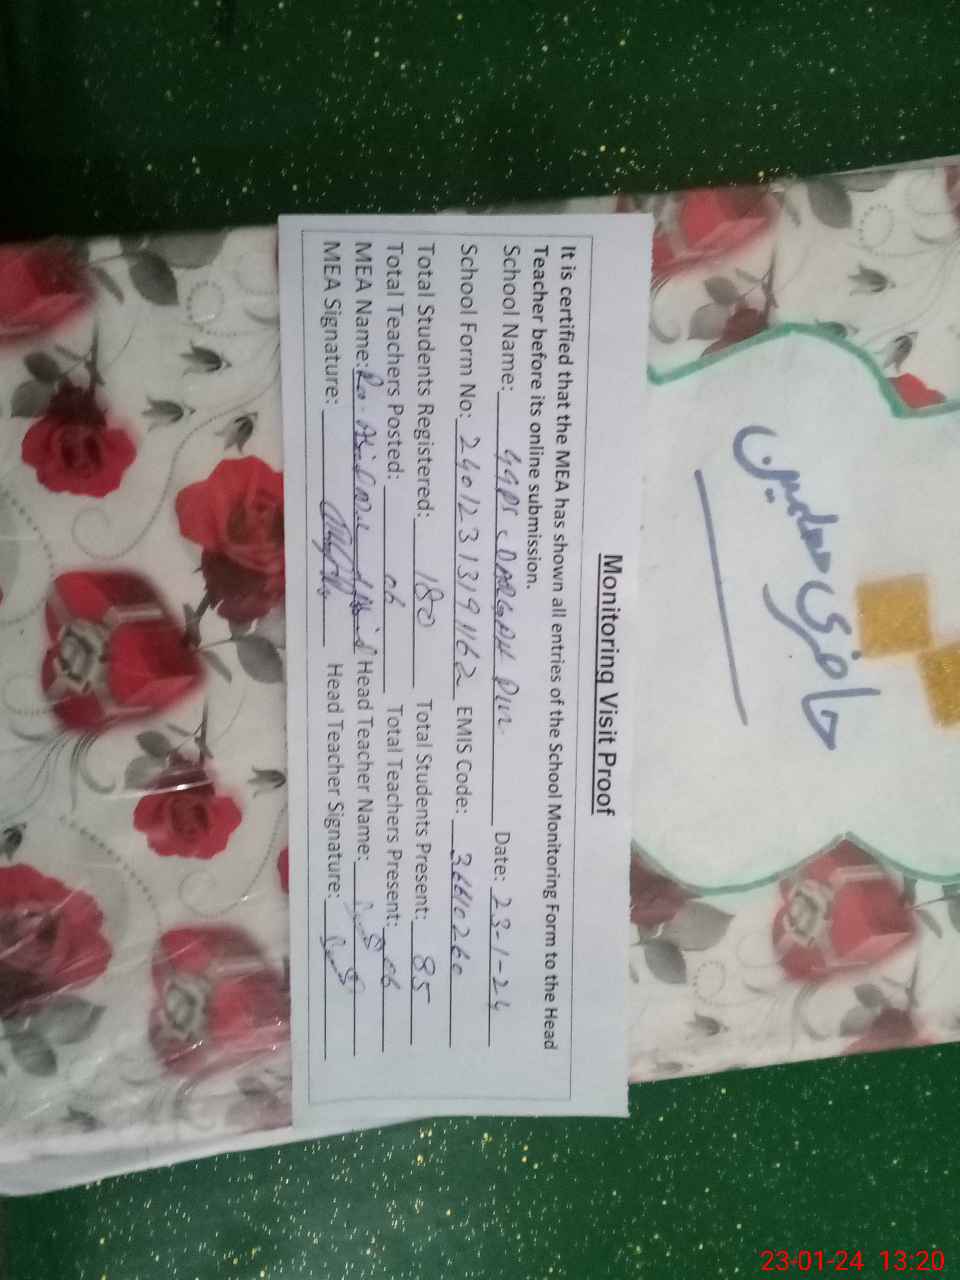 حاضری معلمین
Monitoring Visit Proof
It is certified that the MEA has shown all entries of the School Monitoring Form to the Head
Teacher before its online submission.
School Name: Date: 23-1-24
School Form No: 24012313191162 EMIS Code:
Total Students Registered: 180 Total Students Present: 85
Total Teachers Posted: 06 Total Teachers Present: 06
MEA Name: Head Teacher Name:
MEA Signature: Head Teacher Signature:
23-01-24 13:20